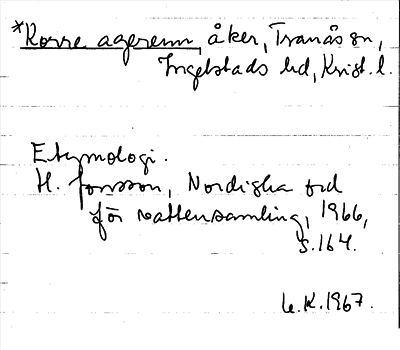 *Korre agerenn, åker, Tranås sn,
Ingelstads hd, Krist. l.
Etymologi.
H. Jonsson, Nordiska ord
för vattensamling, 1966,
S.164.
U.K.1967.